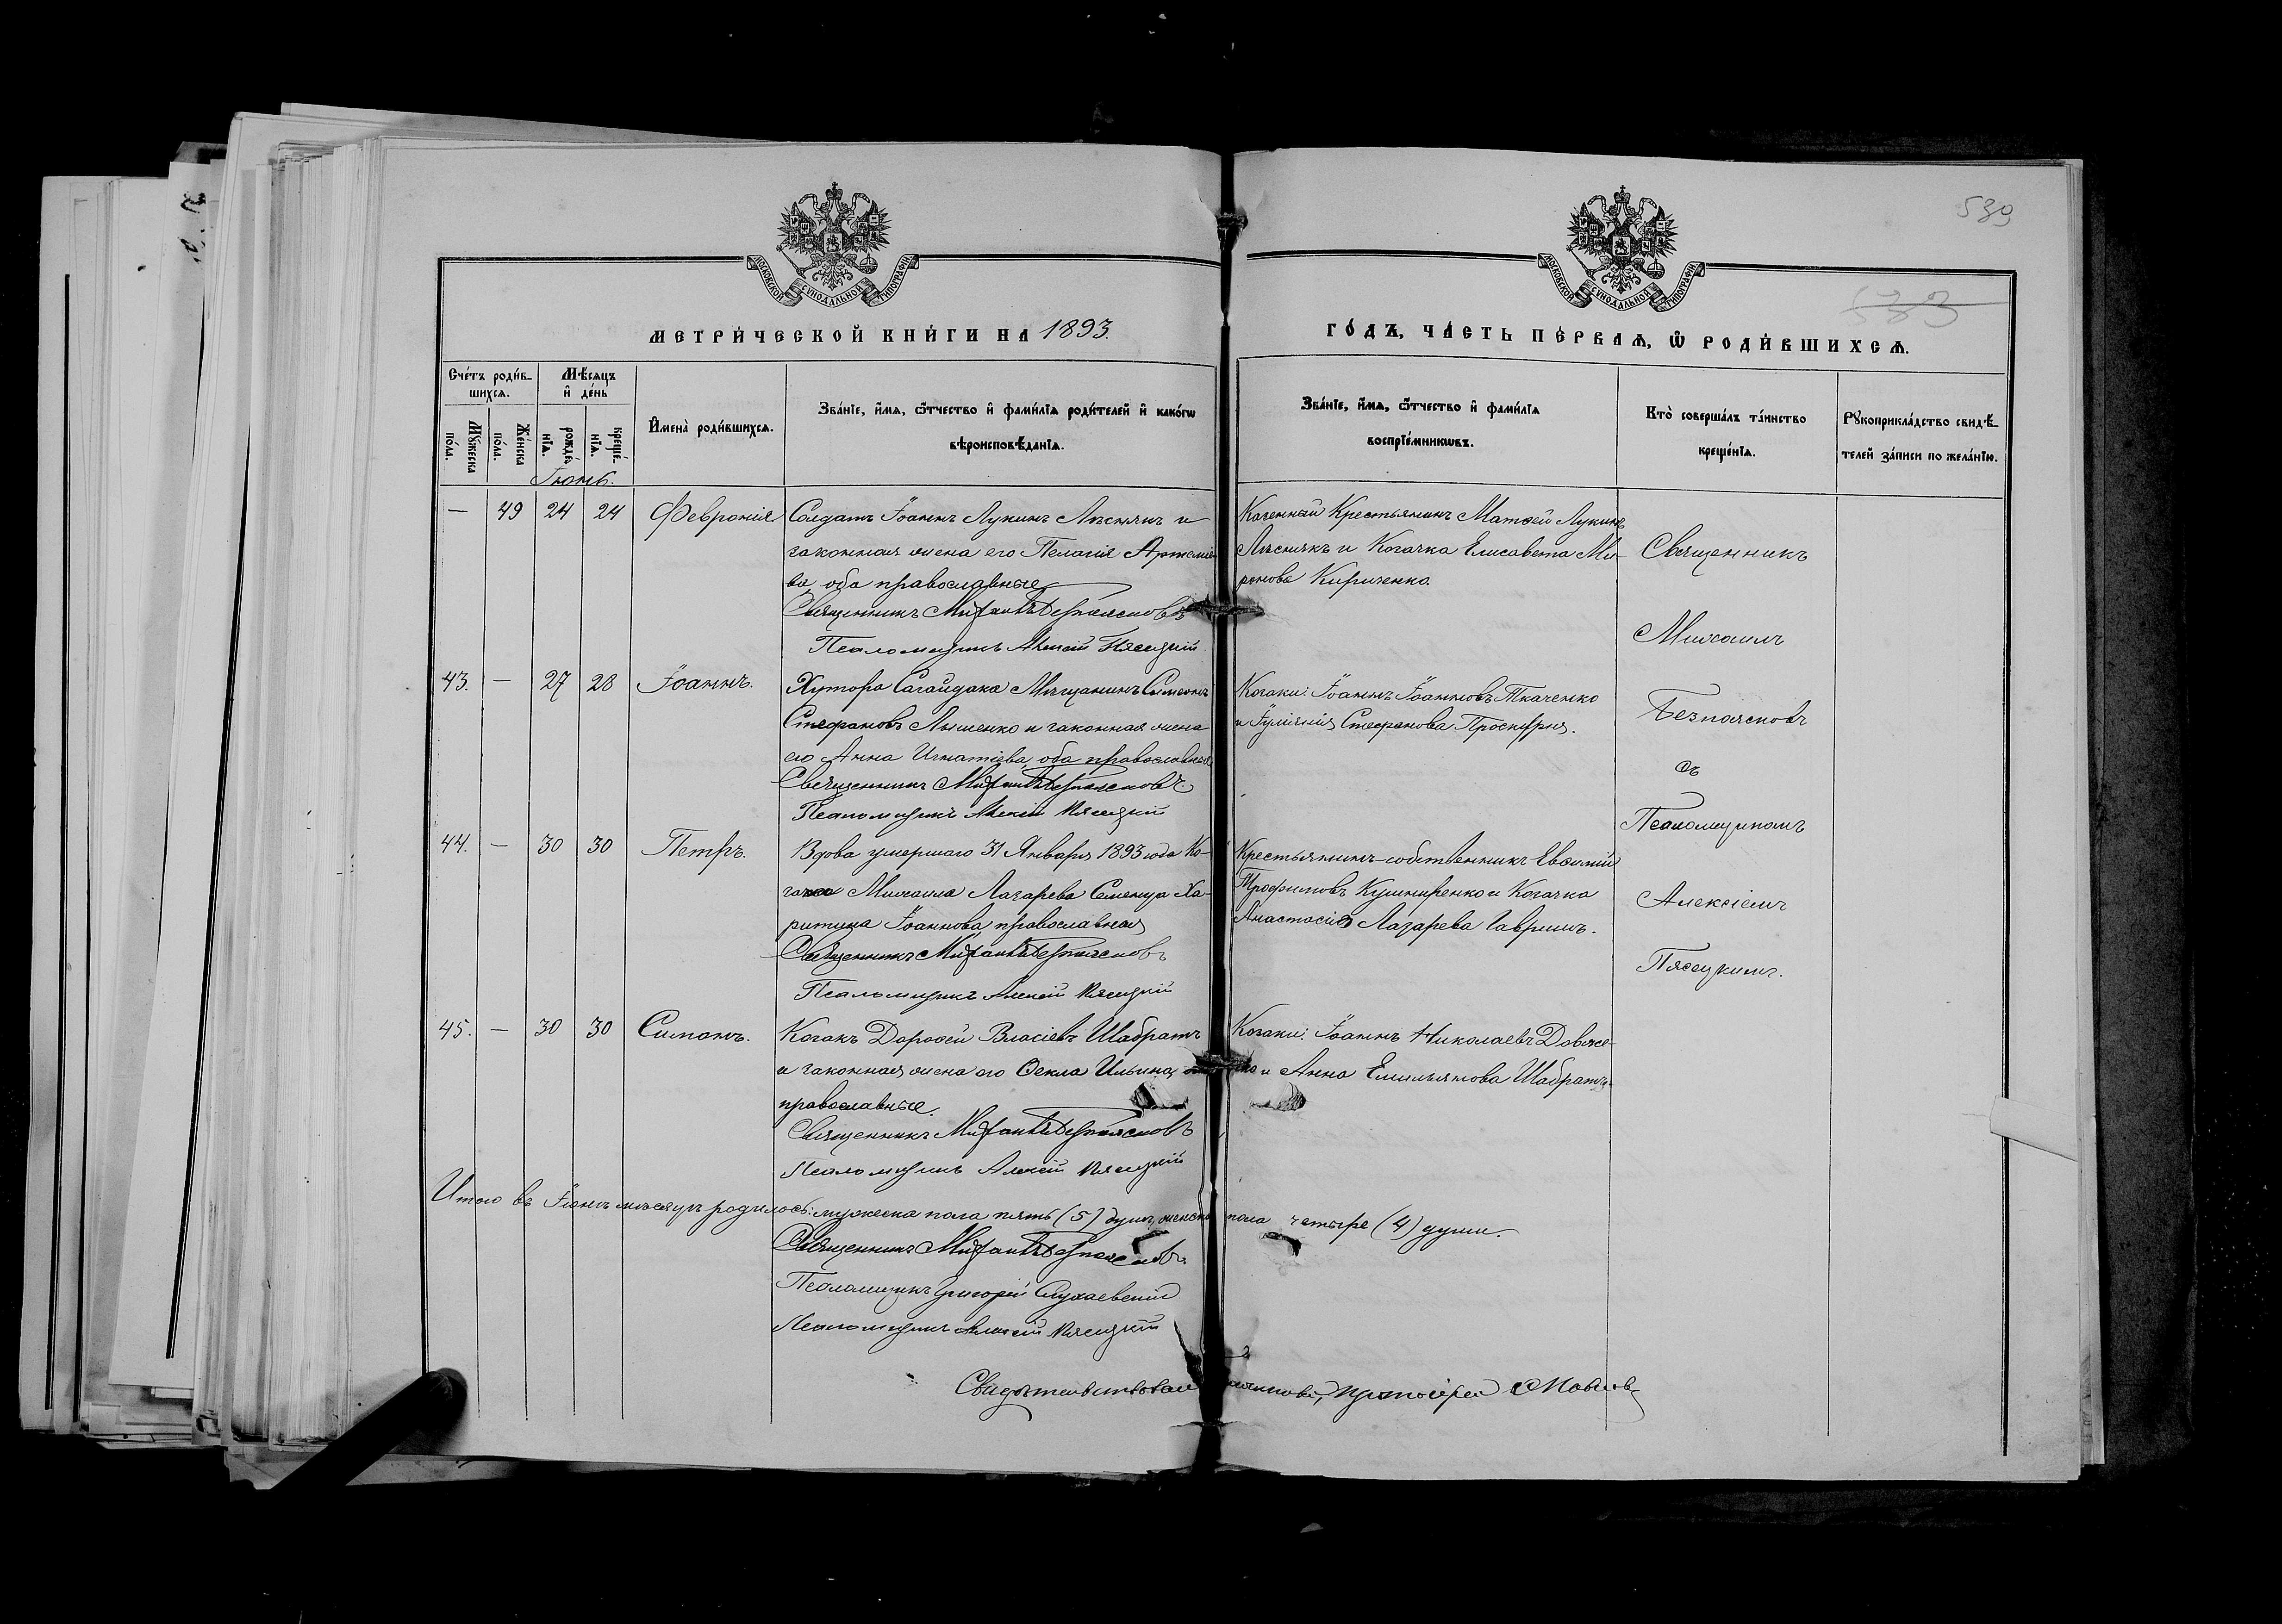 539
МОСКОВСКОЙ СУНОДАЛЬНОЙ ТИПОГРАФІИ
МОСКОВСКОЙ СУНОДАЛЬНОЙ ТИПОГРАФІИ
533
МЕТРИ́ЧЕСКОЙ КНИ́ГИ НА 1893.
ГО́ДЪ, ЧА́СТЬ ПЕ́РВАѦ, Ѡ РОДИ́ВШИХСѦ.
Сче́тъ роди́в-
шихсѧ.
Мꙋ́жеска
по́ла.
Же́нска
по́ла.
Мѣ́сяцъ
и҆ де́нь
рожде́-
нїѧ.
креще́-
нїѧ.
И҆мена̀ роди́вшихсѧ.
Зва́нїе, и҆́мѧ, ѻ҆́тчество и҆ фами́лїѧ роди́телей и҆ како́гѡ
вѣроисповѣ́данїѧ.
Зва́нїе, и҆́мѧ, ѻ҆́тчество и҆ фами́лїѧ
воспрїе́мникѡвъ.
Кто̀ соверша́лъ та́инство
креще́нїѧ.
Рꙋкоприкла́дство свидѣ́-
телей за́писи по жела́нїю.
Іюнь.
— 49 24 24 Февронія
Солдатъ Іоаннъ Лукинъ Лѣснякъ и
законная жена его Пелагія Артемье-
ва, оба православные
Священникъ Михаилъ Безпоясновъ
Псаломщикъ Алексій Пясецкій
Казенный Крестьянинъ Матѳей Лукинъ
Лѣснякъ и Козачка Елисавета Ми-
ронова Кириченко.
Священникъ
Михаилъ
Безпоясновъ
съ
Псаломщикомъ
Алексіемъ
Пясецкимъ.
43. — 27 28 Іоаннъ.
Хутора Сагайдака Мѣщанинъ Симеонъ
Стефановъ Лышенко и законная жена
его Анна Игнатіева, оба православные
Священникъ Михаилъ Безпоясновъ.
Псаломщикъ Алексій Пясецкій
Козаки: Іоаннъ Іоанновъ Ткаченко
и Іуліанія Стефанова Проскурня.
44. — 30 30 Петръ.
Вдова умершаго 31 Января 1893 года Ко-
зака Михаила Лазарева Семенца Ха-
ритина Іоаннова, православная
Священникъ Михаилъ Безпоясновъ
Псаломщикъ Алексій Пясецкій
Крестьянинъ-собственникъ Евѳимій
Трофимовъ Кушниренко и Козачка
Анастасія Лазарева Гавришъ.
45. — 30 30 Симонъ.
Козакъ Дороѳей Власіевъ Шабратъ
и законная жена его Ѳекла Ильина,
православные.
Священникъ Михаилъ Безпоясновъ
Псаломщикъ Алексій Пясецкій
Козаки: Іоаннъ Николаевъ Довже-
нко и Анна Емильянова Шабратъ.
Итого въ Іюнѣ мѣсяцѣ родилось: мужеска пола пять (5) душъ, женска пола четыре (4) души.
Священникъ Михаилъ Безпоясновъ.
Псаломщикъ Григорій
Псаломщикъ Алексій Пясецкій
Свидѣтельствовалъ Протоіерей